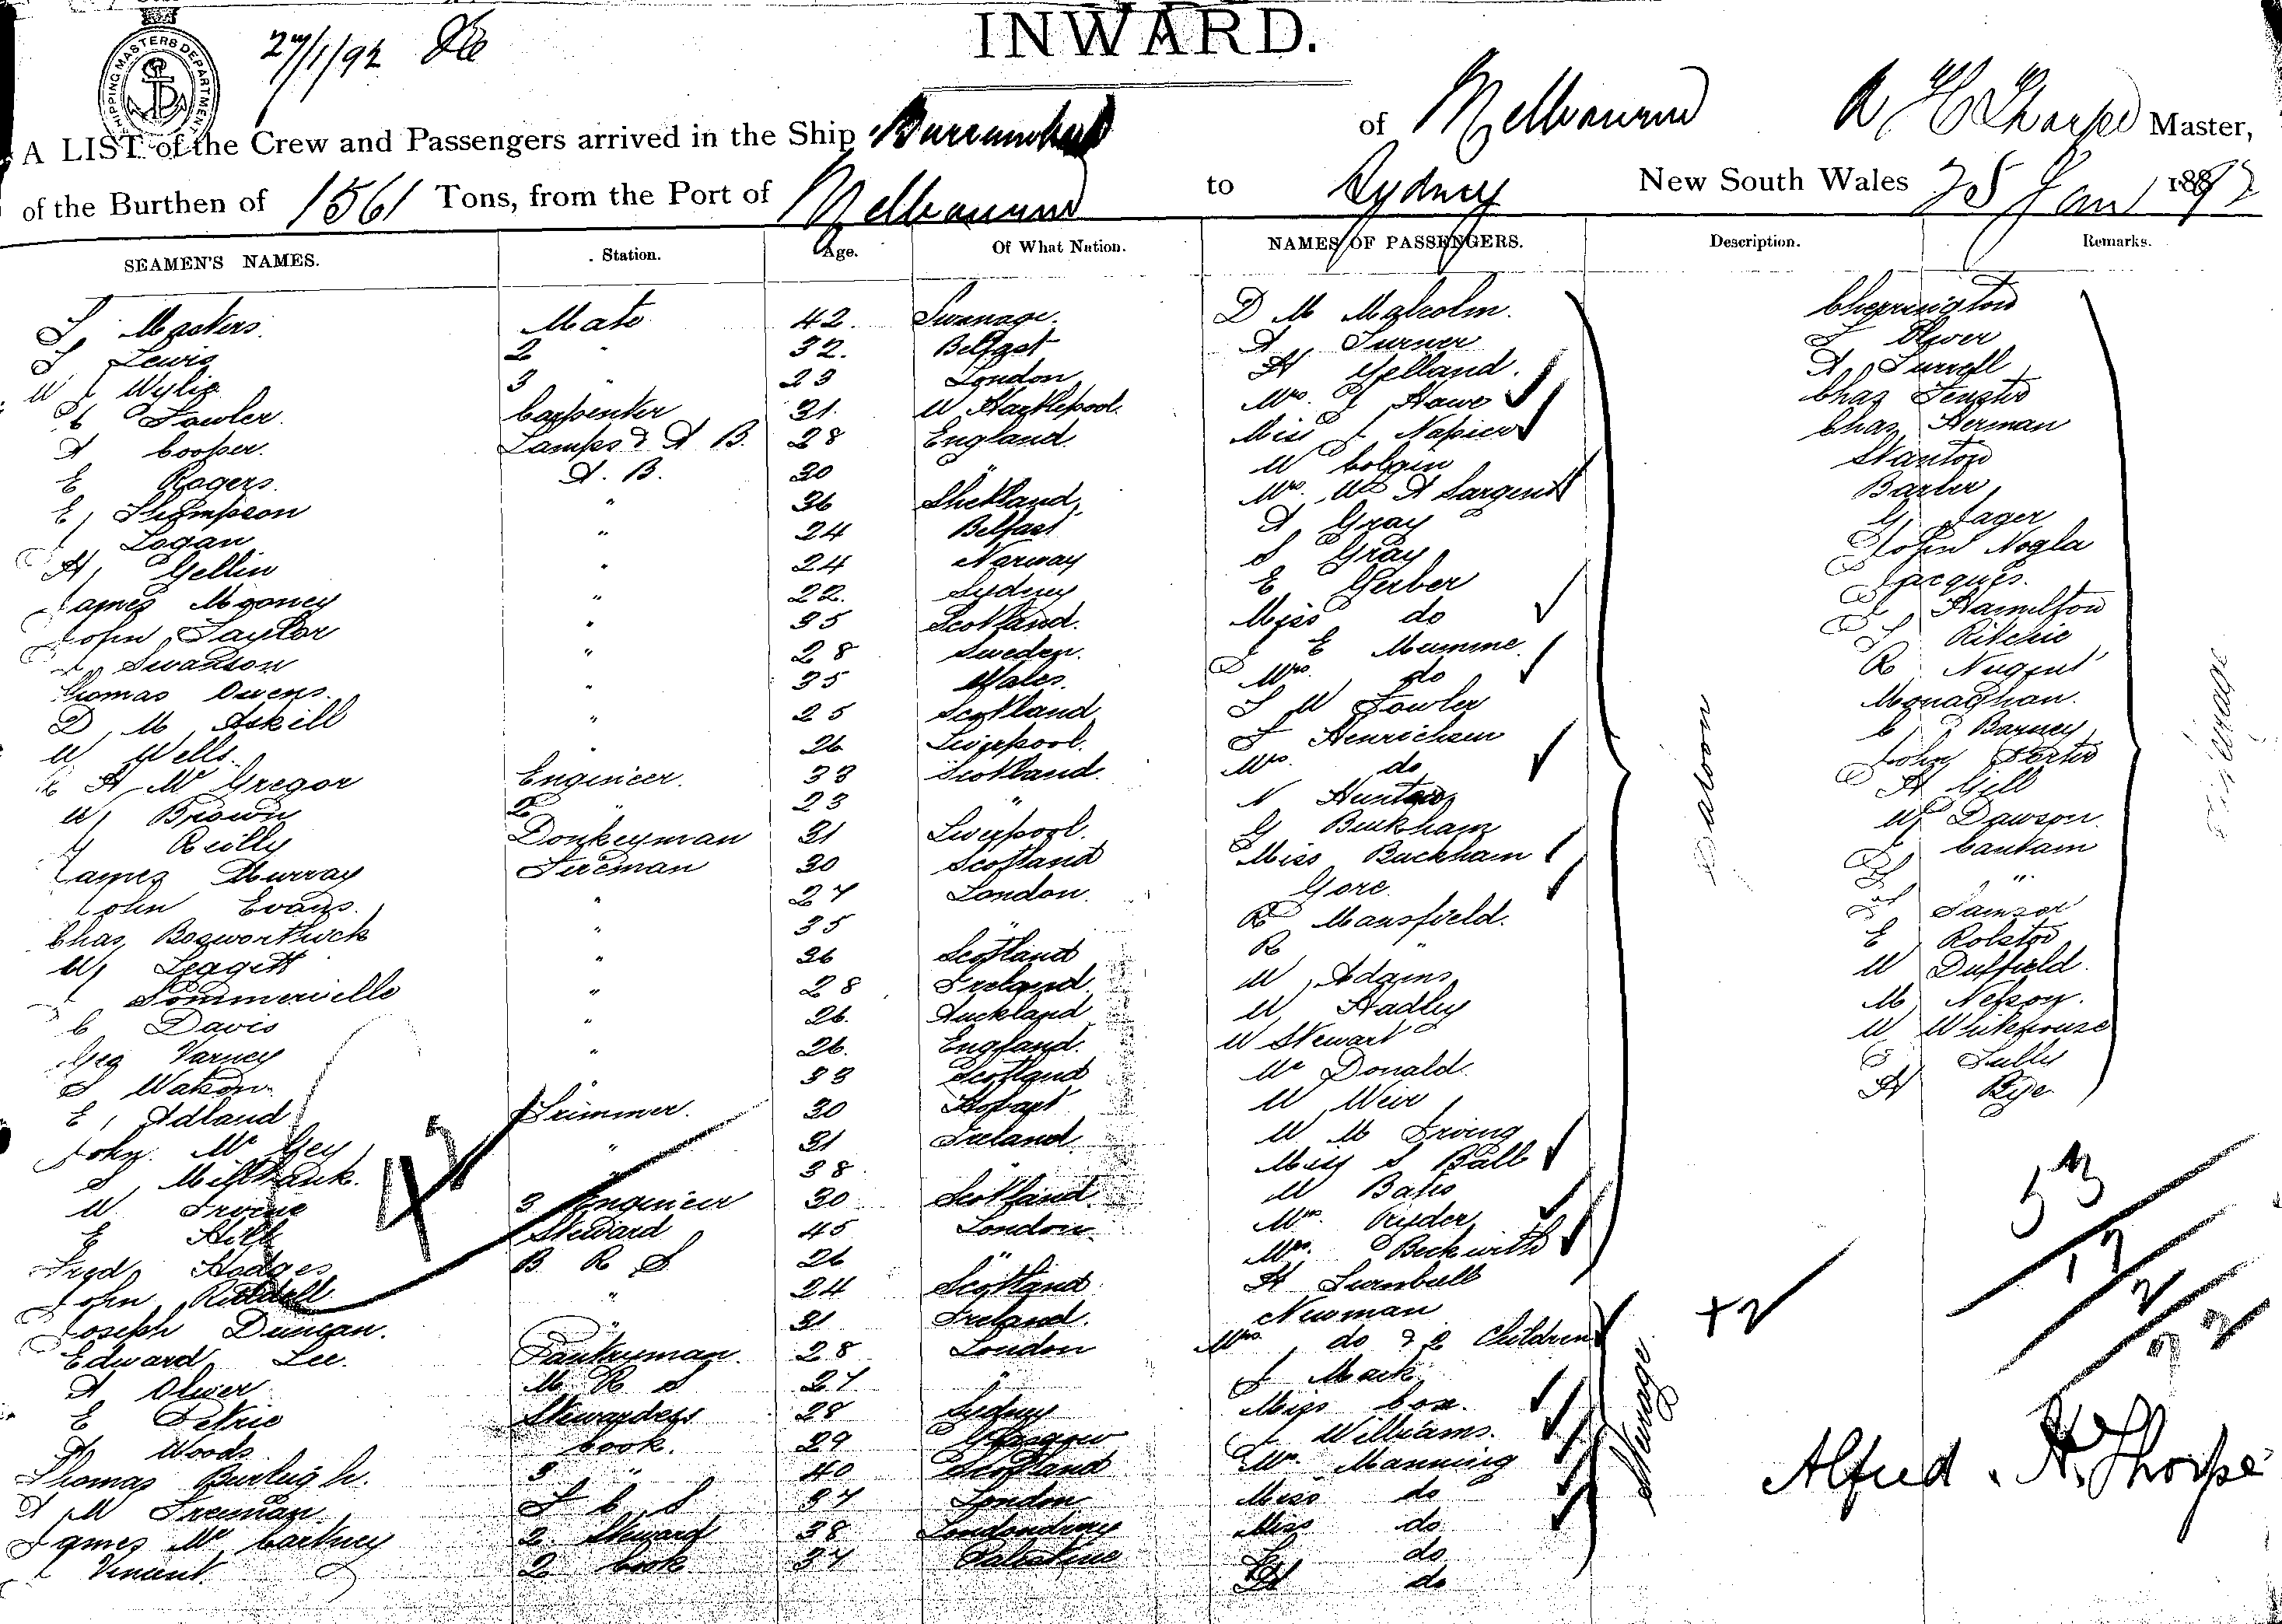 INWARD.
SHIPPING MASTERS DEPARTMENT
27/1/92
A LIST of the Crew and Passengers arrived in the Ship Burrumbeet of Melbourne A H Thorpe Master,
of the Burthen of 1561 Tons, from the Port of Melbourne to Sydney New South Wales 25 Jan 1892
SEAMEN'S NAMES. Station. Age. Of What Nation. NAMES OF PASSENGERS. Description. Remarks.
Masters Mate 42 Swanage. D M Malcolm. Cherrington
Lewis 2 " 32. Belfast A Turner Oliver
W Wylie 3 " 23 London H Yelland. A Turrell
Fowler. Carpenter 31. W Hartlepool. Mrs. Howe Chas
A Cooper. Lamps & A B. 28 England Miss Napier Chas Herman
E Rogers. A. B. 30 " W Colgin Stanton
E Thompson " 36 Shetland, Mrs. A Sargent Barber
Logan " 24 Belfast A Gray G Jager
Gellin " 24 Norway S Gray John Nogla
James Mooney " 22. Sydney E Gerber Jacques.
John Taylor " 35 Scotland. Miss do Hamilton
Swanson " 28 Sweden. E Mumme. Ritchie
Thomas Owens. " 35 Wales. Mrs. do R Nugent
D M Askill " 25 Scotland W Fowler Monaghan.
W Wells. " 26 Liverpool. Henrichsen Barney
A Mc Gregor Engineer. 33 Scotland. Mrs. do John
W Brown 2 " 23 " N Hunter H Gill
Reilly Donkeyman 31 Liverpool. G Buckham W Dawson.
James Murray Fireman 30 Scotland Miss Buckham Cantam
John Evans. " 27 London. Gore. "
Chas Bosworthick " 35 " R Mansfield. Samson
W Leggett " 26 Scotland R " E Rolston
Sommerville " 28 Ireland W Adams W Duffield.
C Davis " 26. Auckland W Hadley M Nelson.
Geo Varney " 26. England. W Stewart W Whitehouse
S Watson " 33 Scotland Mc Donald. Tully
E Adland Trimmer. 30 Hobart W Weir H Bye
John Mc Gey " 31 Ireland W M Irving
S Millbank. " 38 " Miss S Ball
W Irvine 3 Engineer 30 Scotland W Bates
E Hill Steward 45 London Mrs. Ryder
Fred Hodges B R S 26 " Mrs. Beckwith
John Riddell " 24 Scotland H Turnbull
Joseph Duncan. " 31 Ireland. Newman
Edward Lee. Pantryman. 28 London Mrs do & 2 Children
A Oliver M R S 27 " J Mack
E Petrie Stewardess 28 Sydney Miss Cox.
Woods Cook. 29 Glasgow Williams.
Thomas Burleigh. 3 " 40 Scotland Mrs. Manning
A M Freeman F C S 37 London Miss do
James Mc Cartney 2 Steward 38 Londonderry Miss do
Vincent 2 Cook 37 Palestine do
H do
Saloon
Steerage
Steerage
47
+2
53
17
2
72
Alfred. H. Thorpe